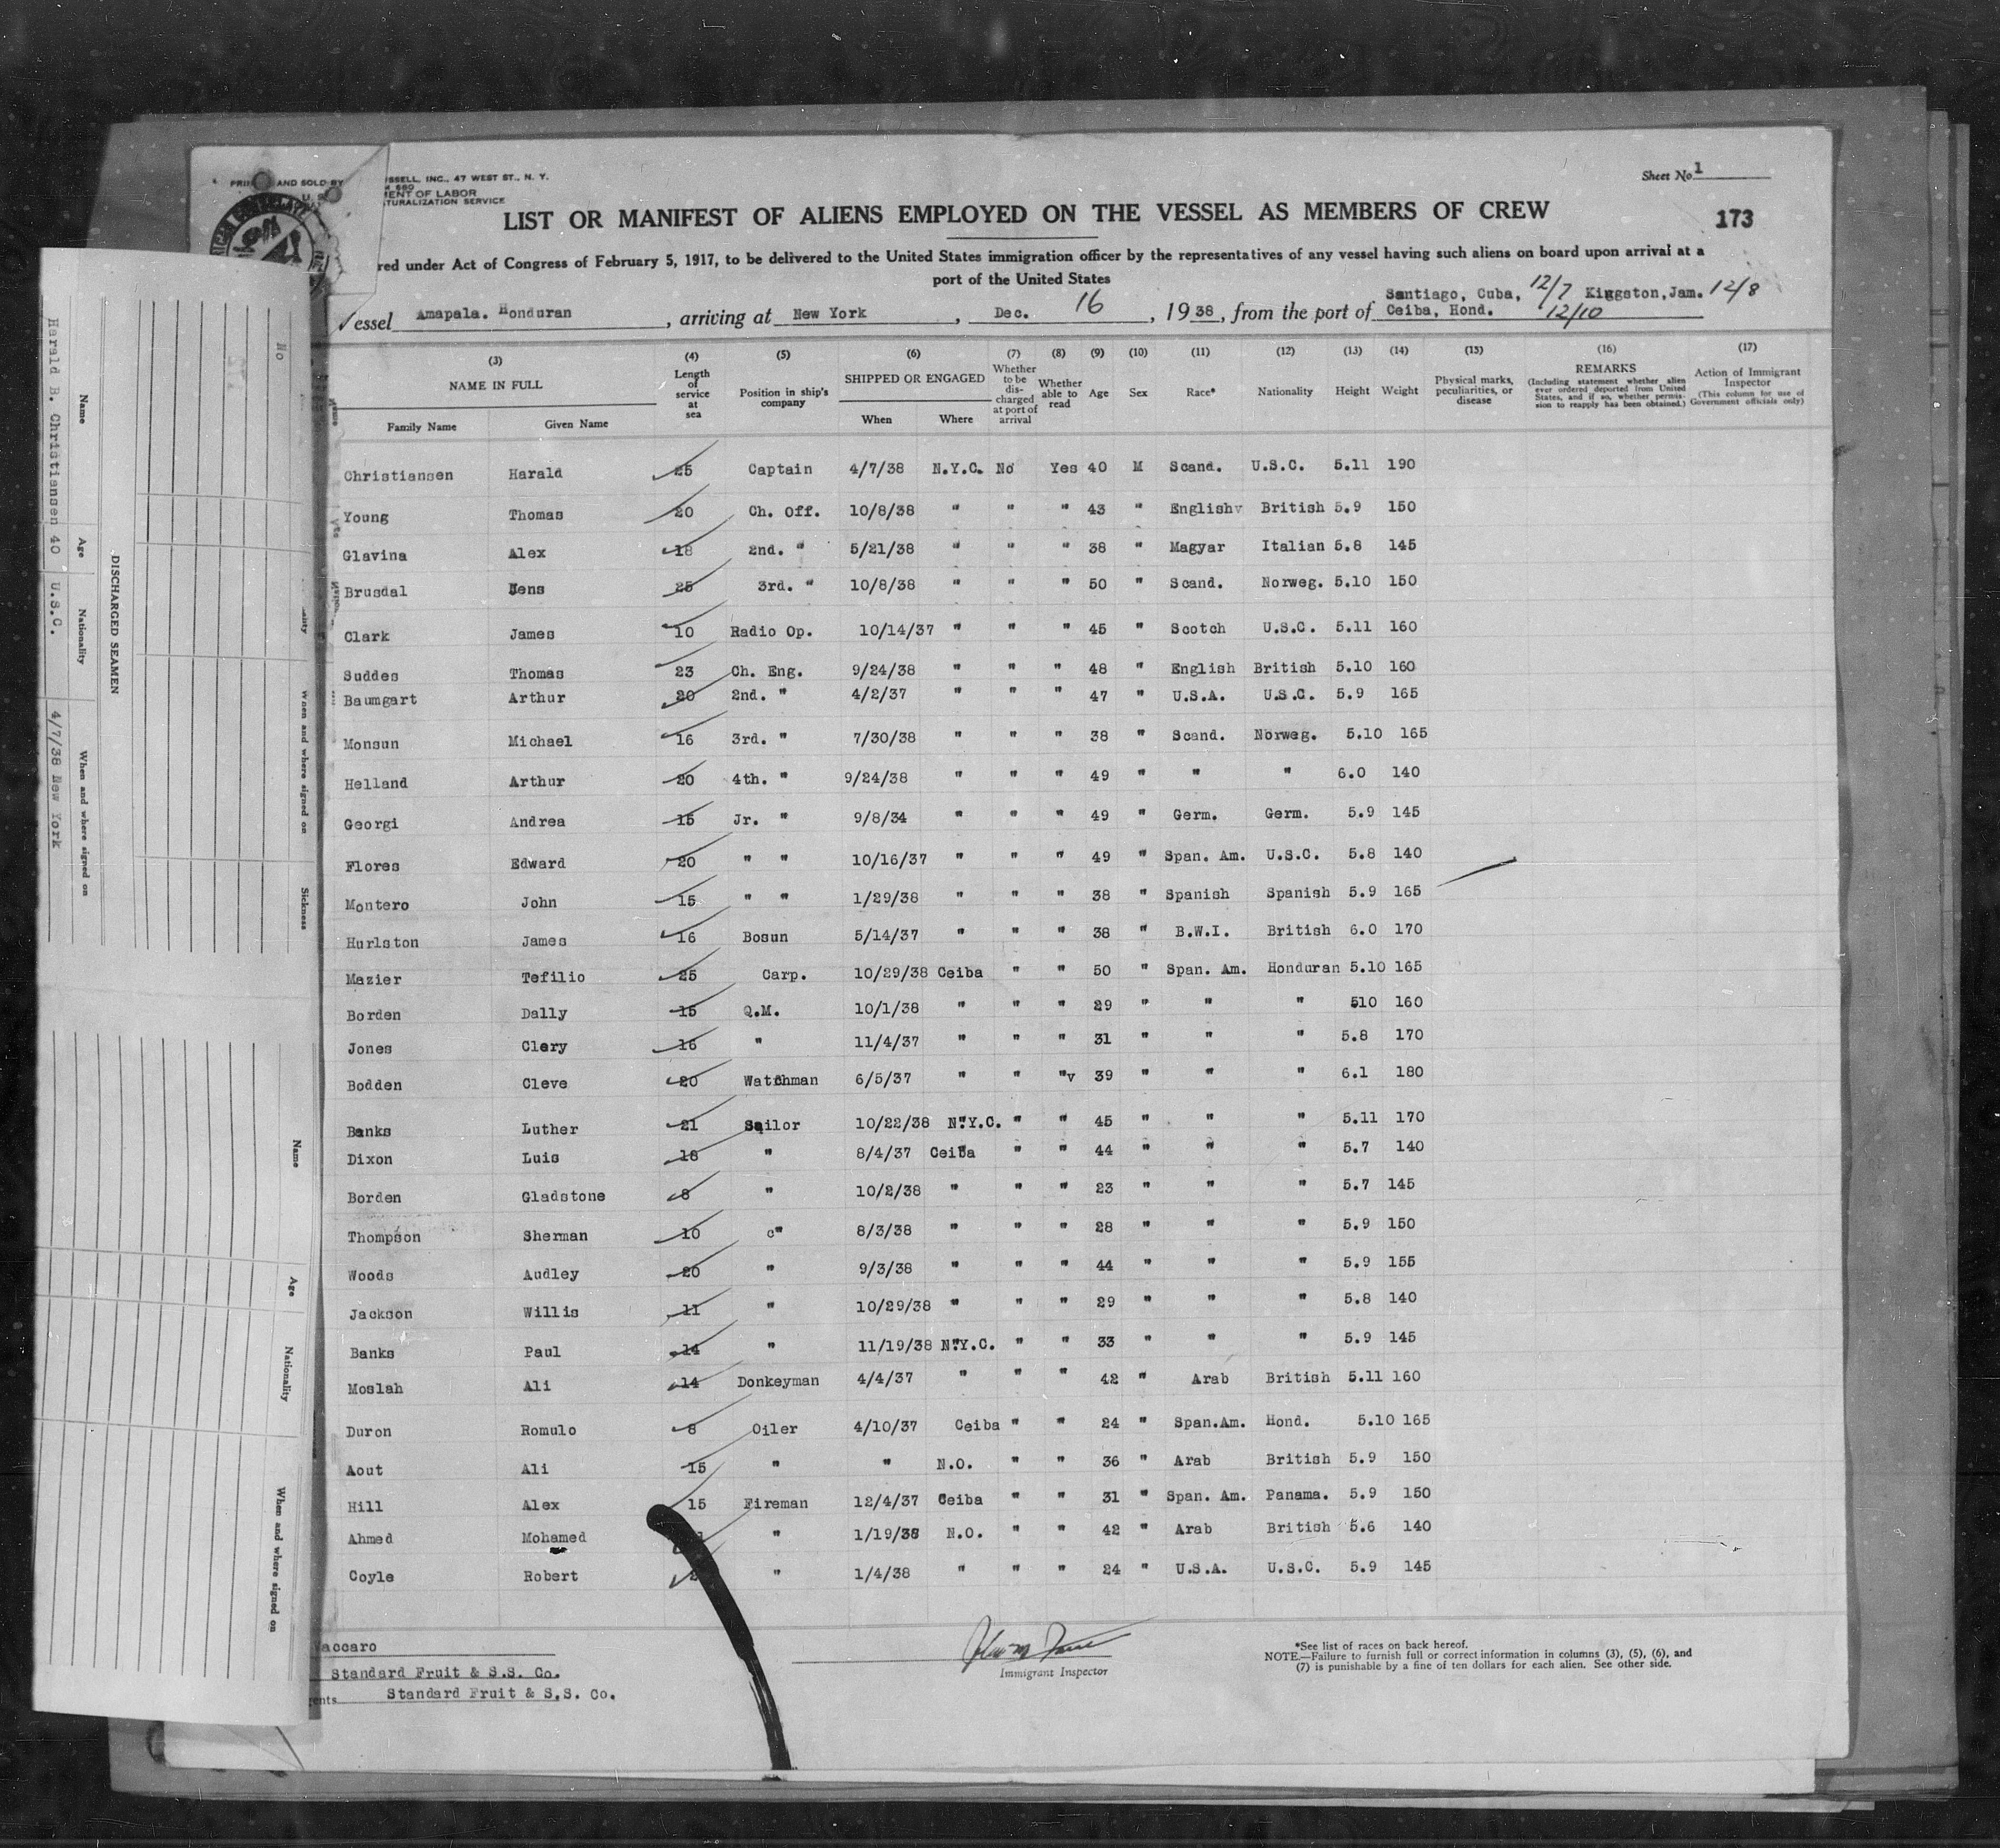 Sheet No 1
PRIN AND SOLD BY SSELL, INC., 47 WEST ST., N. Y.
U. S. MENT OF LABOR
TURALIZATION SERVICE
LIST OR MANIFEST OF ALIENS EMPLOYED ON THE VESSEL AS MEMBERS OF CREW
173
red under Act of Congress of February 5, 1917, to be delivered to the United States immigration officer by the representatives of any vessel having such aliens on board upon arrival at a
port of the United States
Vessel Amapala. Honduran, arriving at New York, Dec. 16, 1938, from the port of Santiago, Cuba, 12/7 Kingston, Jam. 12/8
Ceiba, Hond. 12/10
(3) (4) (5) (6) (7) (8) (9) (10) (11) (12) (13) (14) (15) (16) (17)
NAME IN FULL
Family Name Given Name
Length of service at sea
Position in ship's company
SHIPPED OR ENGAGED
When Where
Whether to be discharged at port of arrival
Whether able to read
Age Sex Race* Nationality Height Weight
Physical marks, peculiarities, or disease
REMARKS
(Including statement whether alien ever ordered deported from United States, and if so, whether permission to reapply has been obtained.)
Action of Immigrant Inspector
(This column for use of Government officials only)
Christiansen Harald 25 Captain 4/7/38 N.Y.C. No Yes 40 M Scand. U.S.C. 5.11 190
Young Thomas 20 Ch. Off. 10/8/38 " " " 43 " Englishv British 5.9 150
Glavina Alex 18 2nd. " 5/21/38 " " " 38 " Magyar Italian 5.8 145
Brusdal Jens 25 3rd. " 10/8/38 " " " 50 " Scand. Norweg. 5.10 150
Clark James 10 Radio Op. 10/14/37 " " " 45 " Scotch U.S.C. 5.11 160
Suddes Thomas 23 Ch. Eng. 9/24/38 " " " 48 " English British 5.10 160
Baumgart Arthur 20 2nd. " 4/2/37 " " " 47 " U.S.A. U.S.C. 5.9 165
Monsun Michael 16 3rd. " 7/30/38 " " " 38 " Scand. Norweg. 5.10 165
Helland Arthur 20 4th. " 9/24/38 " " " 49 " " " 6.0 140
Georgi Andrea 15 Jr. " 9/8/34 " " " 49 " Germ. Germ. 5.9 145
Flores Edward 20 " " 10/16/37 " " " 49 " Span. Am. U.S.C. 5.8 140
Montero John 15 " " 1/29/38 " " " 38 " Spanish Spanish 5.9 165
Hurlston James 16 Bosun 5/14/37 " " " 38 " B.W.I. British 6.0 170
Mazier Tefilio 25 Carp. 10/29/38 Ceiba " " 50 " Span. Am. Honduran 5.10 165
Borden Dally 15 Q.M. 10/1/38 " " " 29 " " " 510 160
Jones Clery 16 " 11/4/37 " " " 31 " " " 5.8 170
Bodden Cleve 20 Watchman 6/5/37 " " "v 39 " " " 6.1 180
Banks Luther 21 Sailor 10/22/38 N.Y.C. " " 45 " " " 5.11 170
Dixon Luis 18 " 8/4/37 Ceiba " " 44 " " " 5.7 140
Borden Gladstone 8 " 10/2/38 " " " 23 " " " 5.7 145
Thompson Sherman 10 c" 8/3/38 " " " 28 " " " 5.9 150
Woods Audley 20 " 9/3/38 " " " 44 " " " 5.9 155
Jackson Willis 11 " 10/29/38 " " " 29 " " " 5.8 140
Banks Paul 14 " 11/19/38 N.Y.C. " " 33 " " " 5.9 145
Moslah Ali 14 Donkeyman 4/4/37 " " " 42 " Arab British 5.11 160
Duron Romulo 8 Oiler 4/10/37 Ceiba " " 24 " Span.Am. Hond. 5.10 165
Aout Ali 15 " " N.O. " " 36 " Arab British 5.9 150
Hill Alex 15 Fireman 12/4/37 Ceiba " " 31 " Span. Am. Panama. 5.9 150
Ahmed Mohamed " 1/19/38 N.O. " " 42 " Arab British 5.6 140
Coyle Robert " 1/4/38 " " " 24 " U.S.A. U.S.C. 5.9 145
Vaccaro
Standard Fruit & S.S. Co.
ents Standard Fruit & S.S. Co.
Immigrant Inspector
*See list of races on back hereof.
NOTE.—Failure to furnish full or correct information in columns (3), (5), (6), and
(7) is punishable by a fine of ten dollars for each alien. See other side.
DISCHARGED SEAMEN
Name Age Nationality When and where signed on
Harald B. Christiansen 40 U.S.C. 4/7/38 New York
No
When and where signed on Sickness
Name Age Nationality When and where signed on